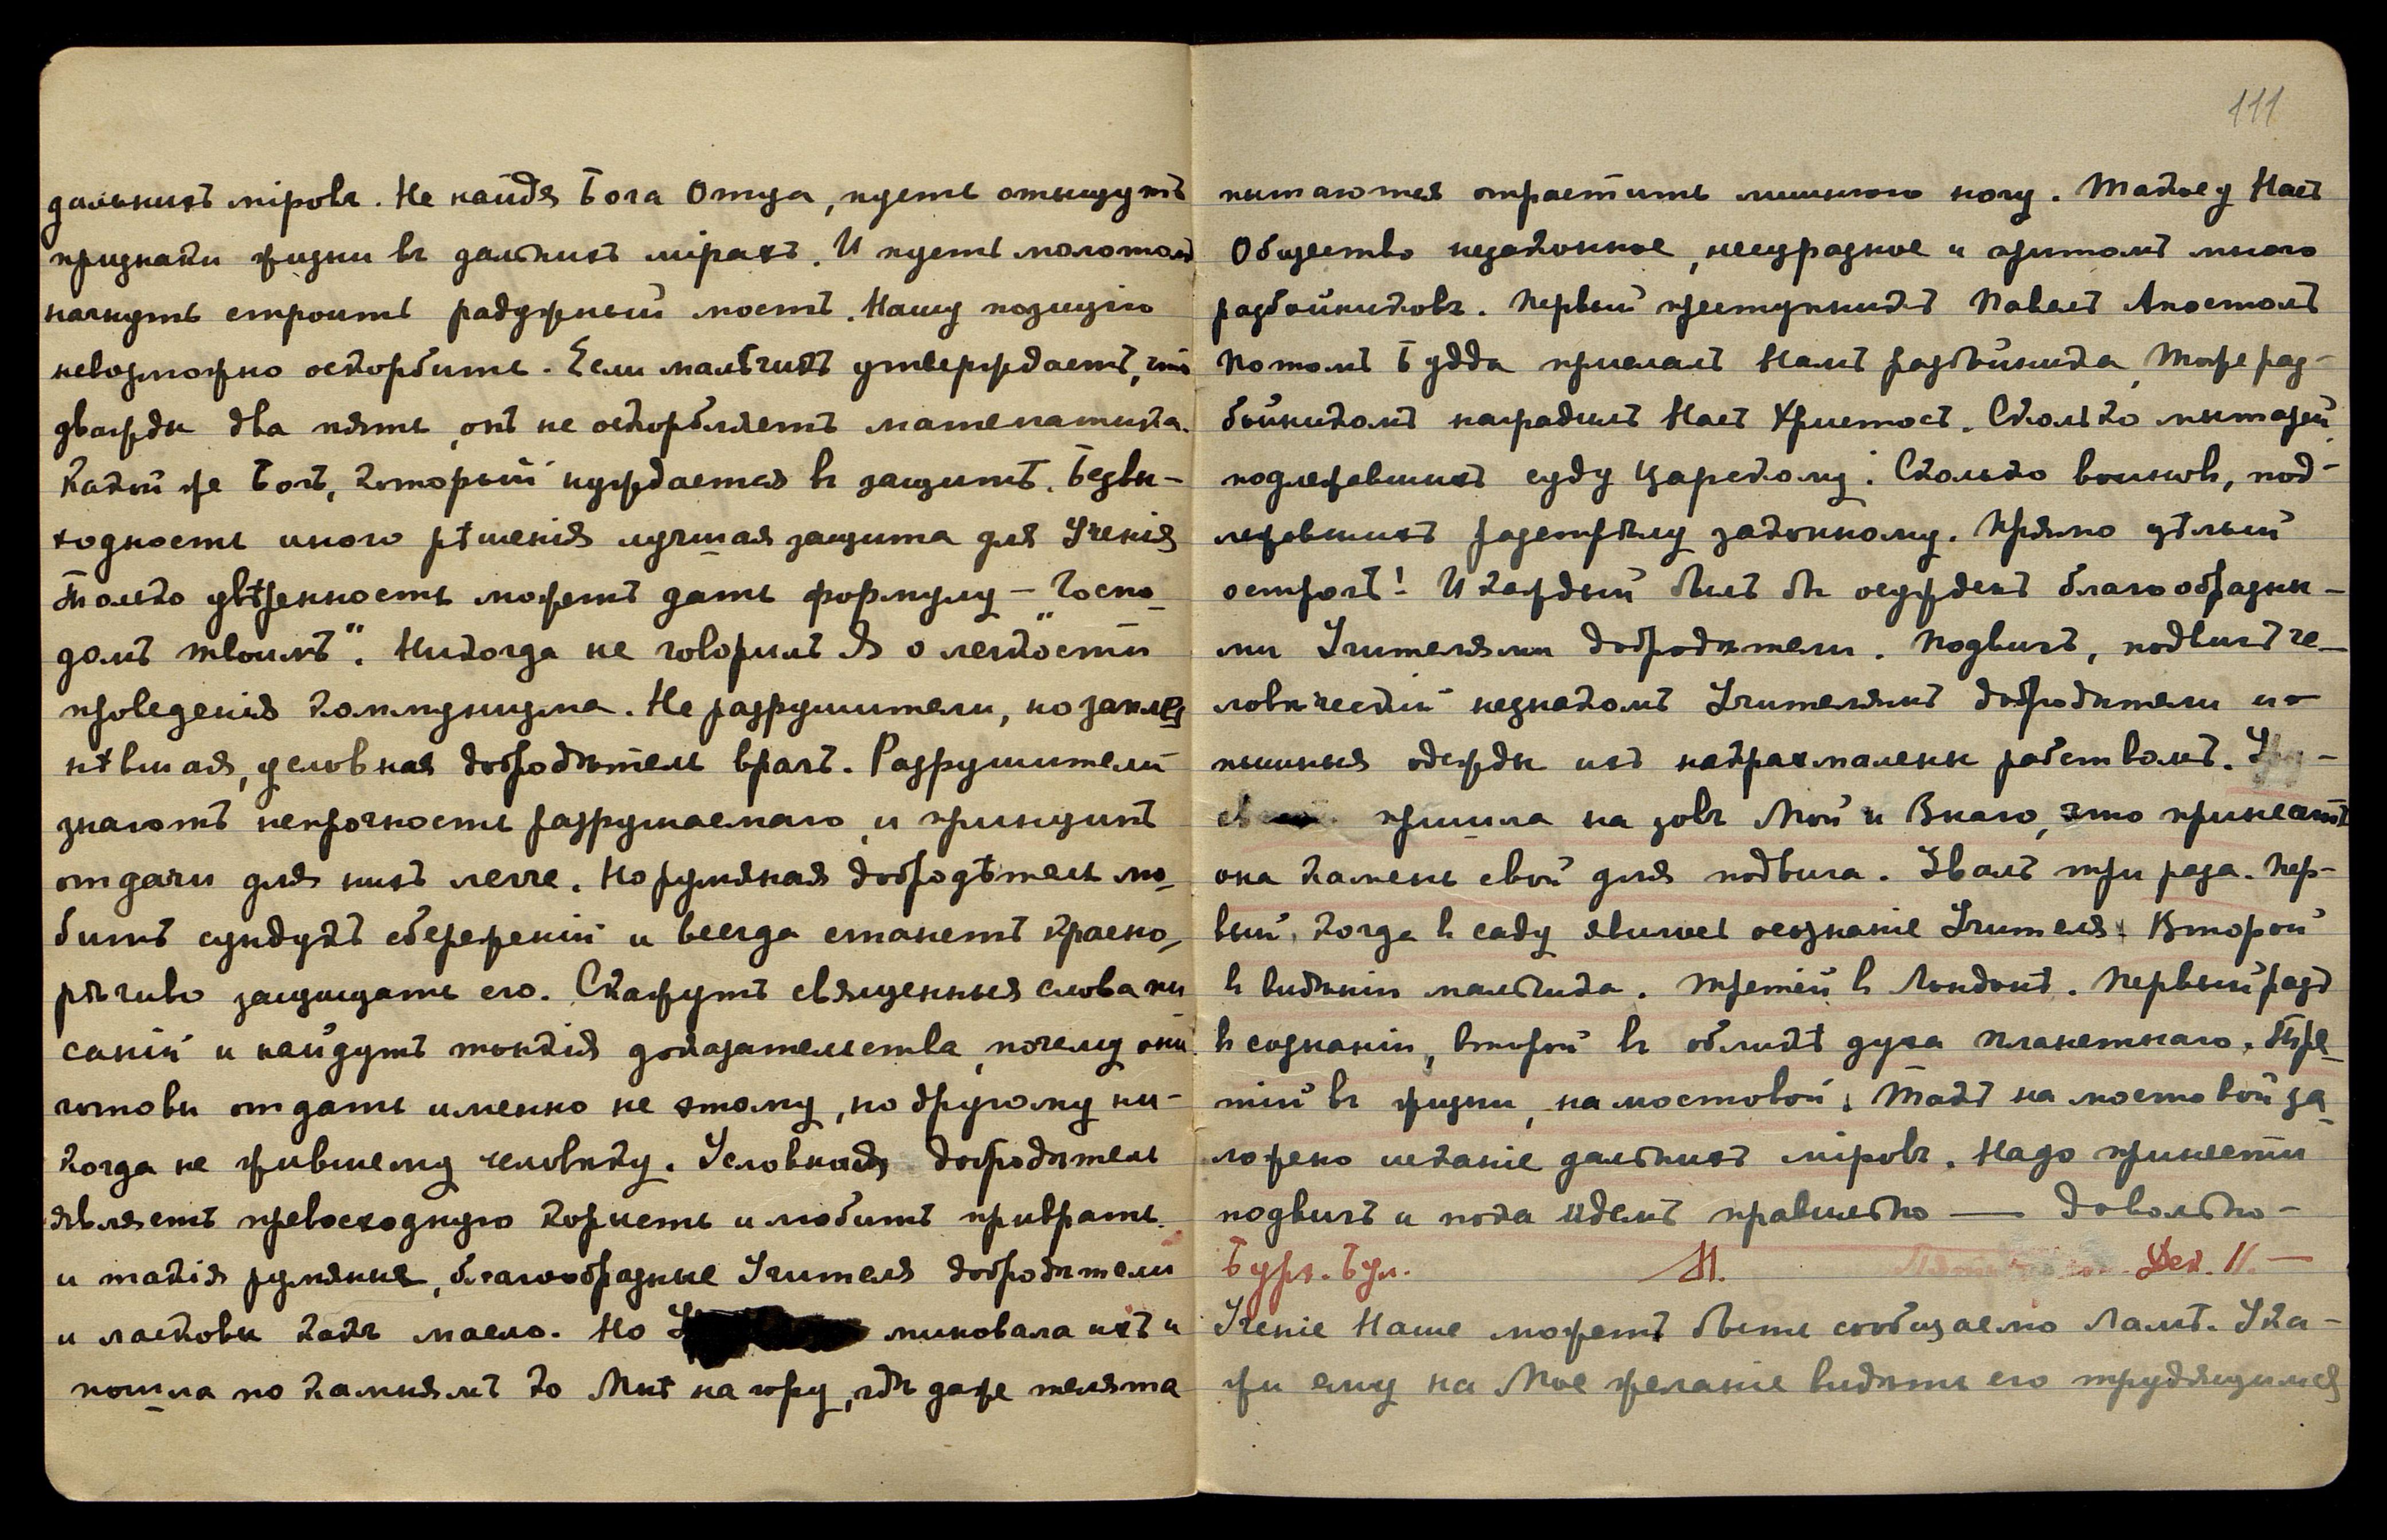 дальнихъ міровъ. Не найдя Бога Отца, пусть отыщутъ
признаки жизни въ дальнихъ мірахъ. И пусть молотомъ
начнутъ строить радужный мостъ. Нашу позицію
невозможно оскорбить. Если мальчикъ утверждаетъ, что
дважды два пять, онъ не оскорбляетъ математика.
Какой же Богъ, который нуждается въ защитѣ. Безвы-
ходность иного рѣшенія лучшая защита для Ученія
Только увѣренность можетъ дать формулу — "Госпо-
домъ твоимъ". Никогда не говорилъ Я о легкости
проведенія коммунизма. Не разрушители, но заплес
нѣвшая, условная добродѣтель врагъ. Разрушители
знаютъ непрочность разрушаемаго, и принципъ
отдачи для нихъ легче. Но румяная добродѣтель лю-
битъ сундукъ сбереженій и всегда станетъ красно-
рѣчиво защищать его. Скажутъ священныя слова пи
саній и найдутъ тонкія доказательства, почему они
готовы отдать именно не этому, но другому ни-
когда не жившему человѣку. Условная добродѣтель
являетъ превосходную корысть и любитъ приврать.
и такія румяные, благообразные Учителя добродѣтели
и ласковы какъ масло. Но миновала ихъ и
пошла по камнямъ ко Мнѣ на гору, гдѣ даже телята
111
пытаются отрастить лишнюю ногу. Такое у Насъ
Общество незаконное, несуразное и притомъ много
разбойниковъ. Первый преступникъ Павелъ Апостолъ
Потомъ Будда прислалъ Намъ разбойника, тоже раз-
бойникомъ наградилъ Насъ Христосъ. Сколько мытарей,
подлежавшихъ суду царскому. Сколько воиновъ, под-
лежавшихъ разстрѣлу законному. Прямо цѣлый
острогъ! И каждый былъ бы осужденъ благообразны-
ми Учителями добродѣтели. Подвигъ, подвигъ че-
ловѣческій незнакомъ Учителямъ добродѣтели но
пышныя одежды ихъ накрахмалены рабствомъ.
пришла на зовъ Мой и Знаю, что принесетъ
она камень свой для подвига. Звалъ три раза. Пер-
вый, когда въ саду явилось осознаніе Учителя. Второй
въ видѣніи мальчика. Третій въ Лондонѣ. Первый разъ
въ сознаніи, второй въ обликѣ духа планетнаго. Тре-
тій въ жизни, на мостовой. Такъ на мостовой за-
ложено исканіе дальнихъ міровъ. Надо принести
подвигъ и пока идемъ правильно — довольно —
Бурх. Бул. М. Дек. 11. —
Ученіе Наше можетъ быть сообщаемо Ламѣ. Ука-
жи ему на Мое желаніе видѣть его трудящимся